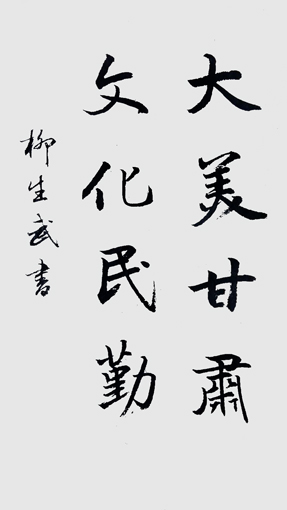 大美甘肅
文化民勤
柳生武書